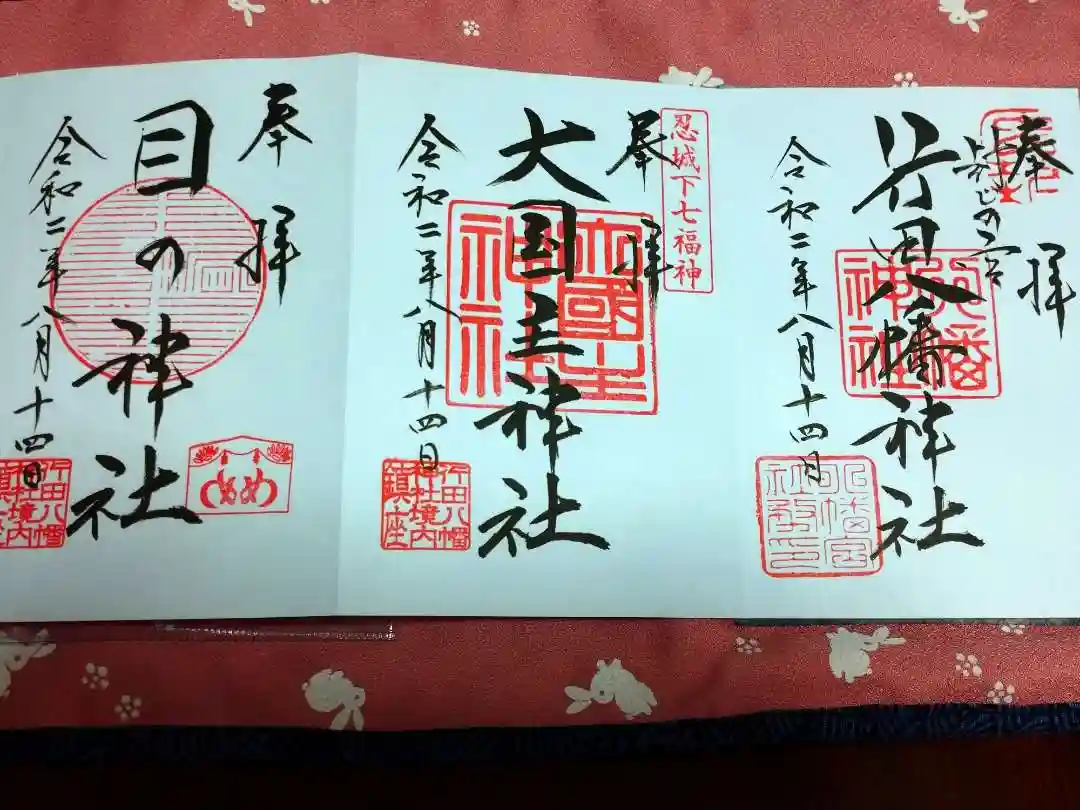 奉拝
封じの宮
行田八幡神社
八幡
神社
令和二年八月十四日
忍城下七福神
奉拝
大国主神社
大國主
神社
令和二年八月十四日
行田八幡
神社境内
鎮座
奉拝
目の神社
めめ
令和二年八月十四日
行田八幡
神社境内
鎮座